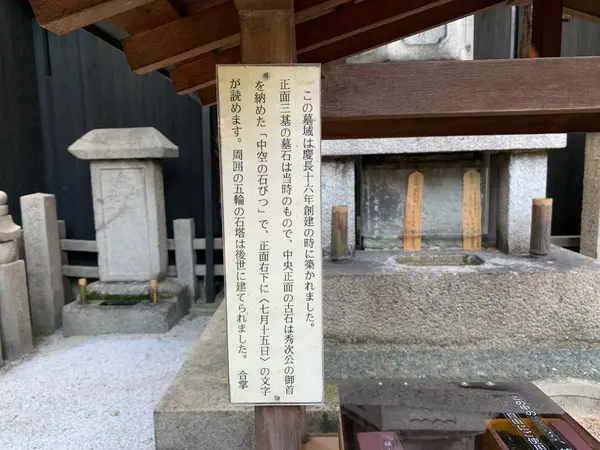 この墓域は慶長十六年創建の時に築かれました。
正面三基の墓石は当時のもので、中央正面の古石は秀次公の御首
を納めた「中空の石びつ」で、正面右下に〈七月十五日〉の文字
が読めます。周囲の五輪の石塔は後世に建てられました。 合掌